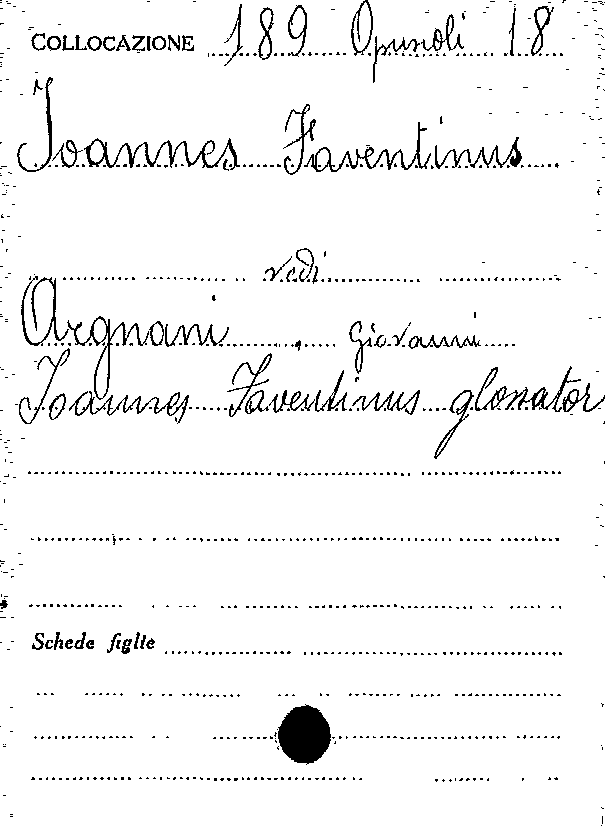 COLLOCAZIONE 189 Opuscoli 18
Joannes Faventinus
vedi
Argnani, Giovanni
Joannes Faventinus glossator
Schede figlie